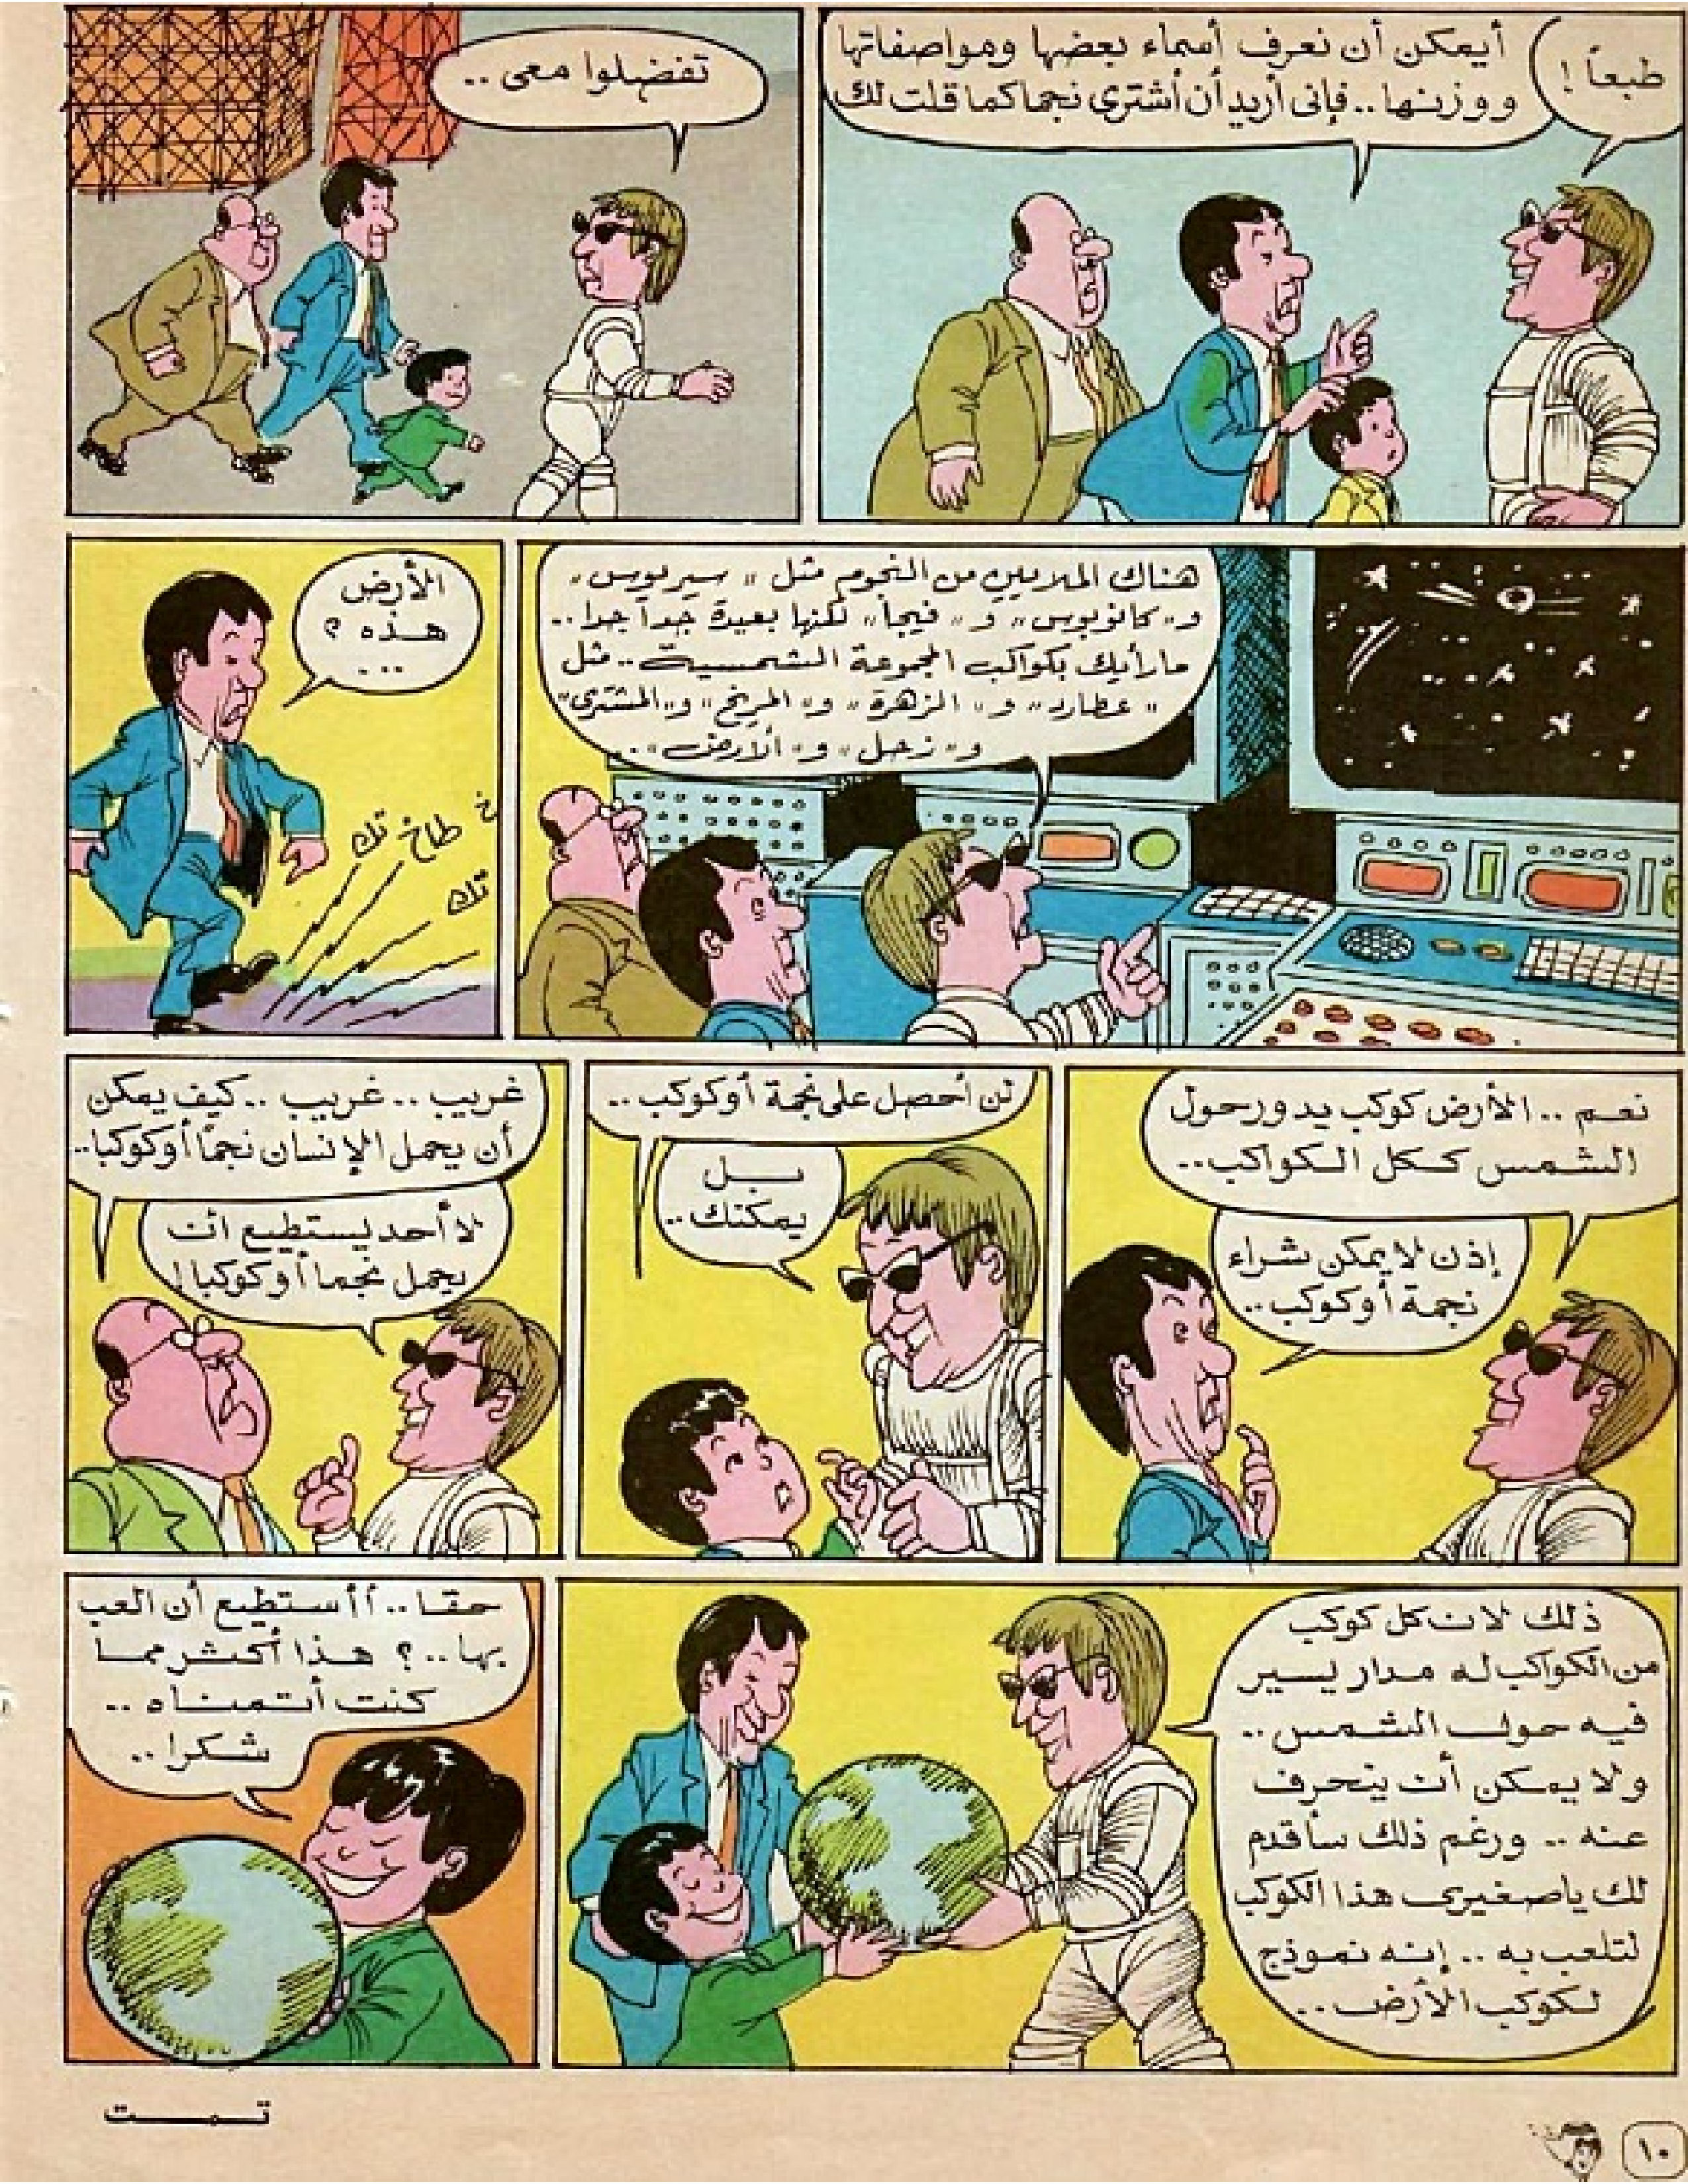 طبعاً !
أيمكن أن نعرف أسماء بعضها ومواصفاتها
ووزنها .. فإنى أريد أن أشترى نجما كما قلت لك
تفضلوا معى ..
هناك الملايين من النجوم مثل " سيريوس "
و" كانوبوس " و " فيجا " لكنها بعيدة جداً جدا ..
ما رأيك بكواكب المجموعة الشمسية .. مثل
" عطارد " و " الزهرة " و " المريخ " و " المشترى "
و " زحل " و " الأرض " ..
الأرض
هذه ؟
...
تك
طاخ
خ
تك
نعم .. الأرض كوكب يدور حول
الشمس ككل الكواكب ..
إذن لا يمكن شراء
نجمة أو كوكب ..
لن أحصل على نجمة أو كوكب ..
بل
يمكنك ..
غريب .. غريب .. كيف يمكن
أن يحمل الإنسان نجمًا أو كوكبا ..
لا أحد يستطيع ان
يحمل نجما أو كوكبا !
ذلك لان كل كوكب
من الكواكب له مدار يسير
فيه حول الشمس ..
ولا يمكن أن ينحرف
عنه .. ورغم ذلك سأقدم
لك ياصغيرى هذا الكوكب
لتلعب به .. إنه نموذج
لكوكب الأرض ..
حقا .. أأستطيع أن العب
بها .. ؟ هذا أكثر مما
كنت أتمناه ..
شكرا ..
تمت
١٠